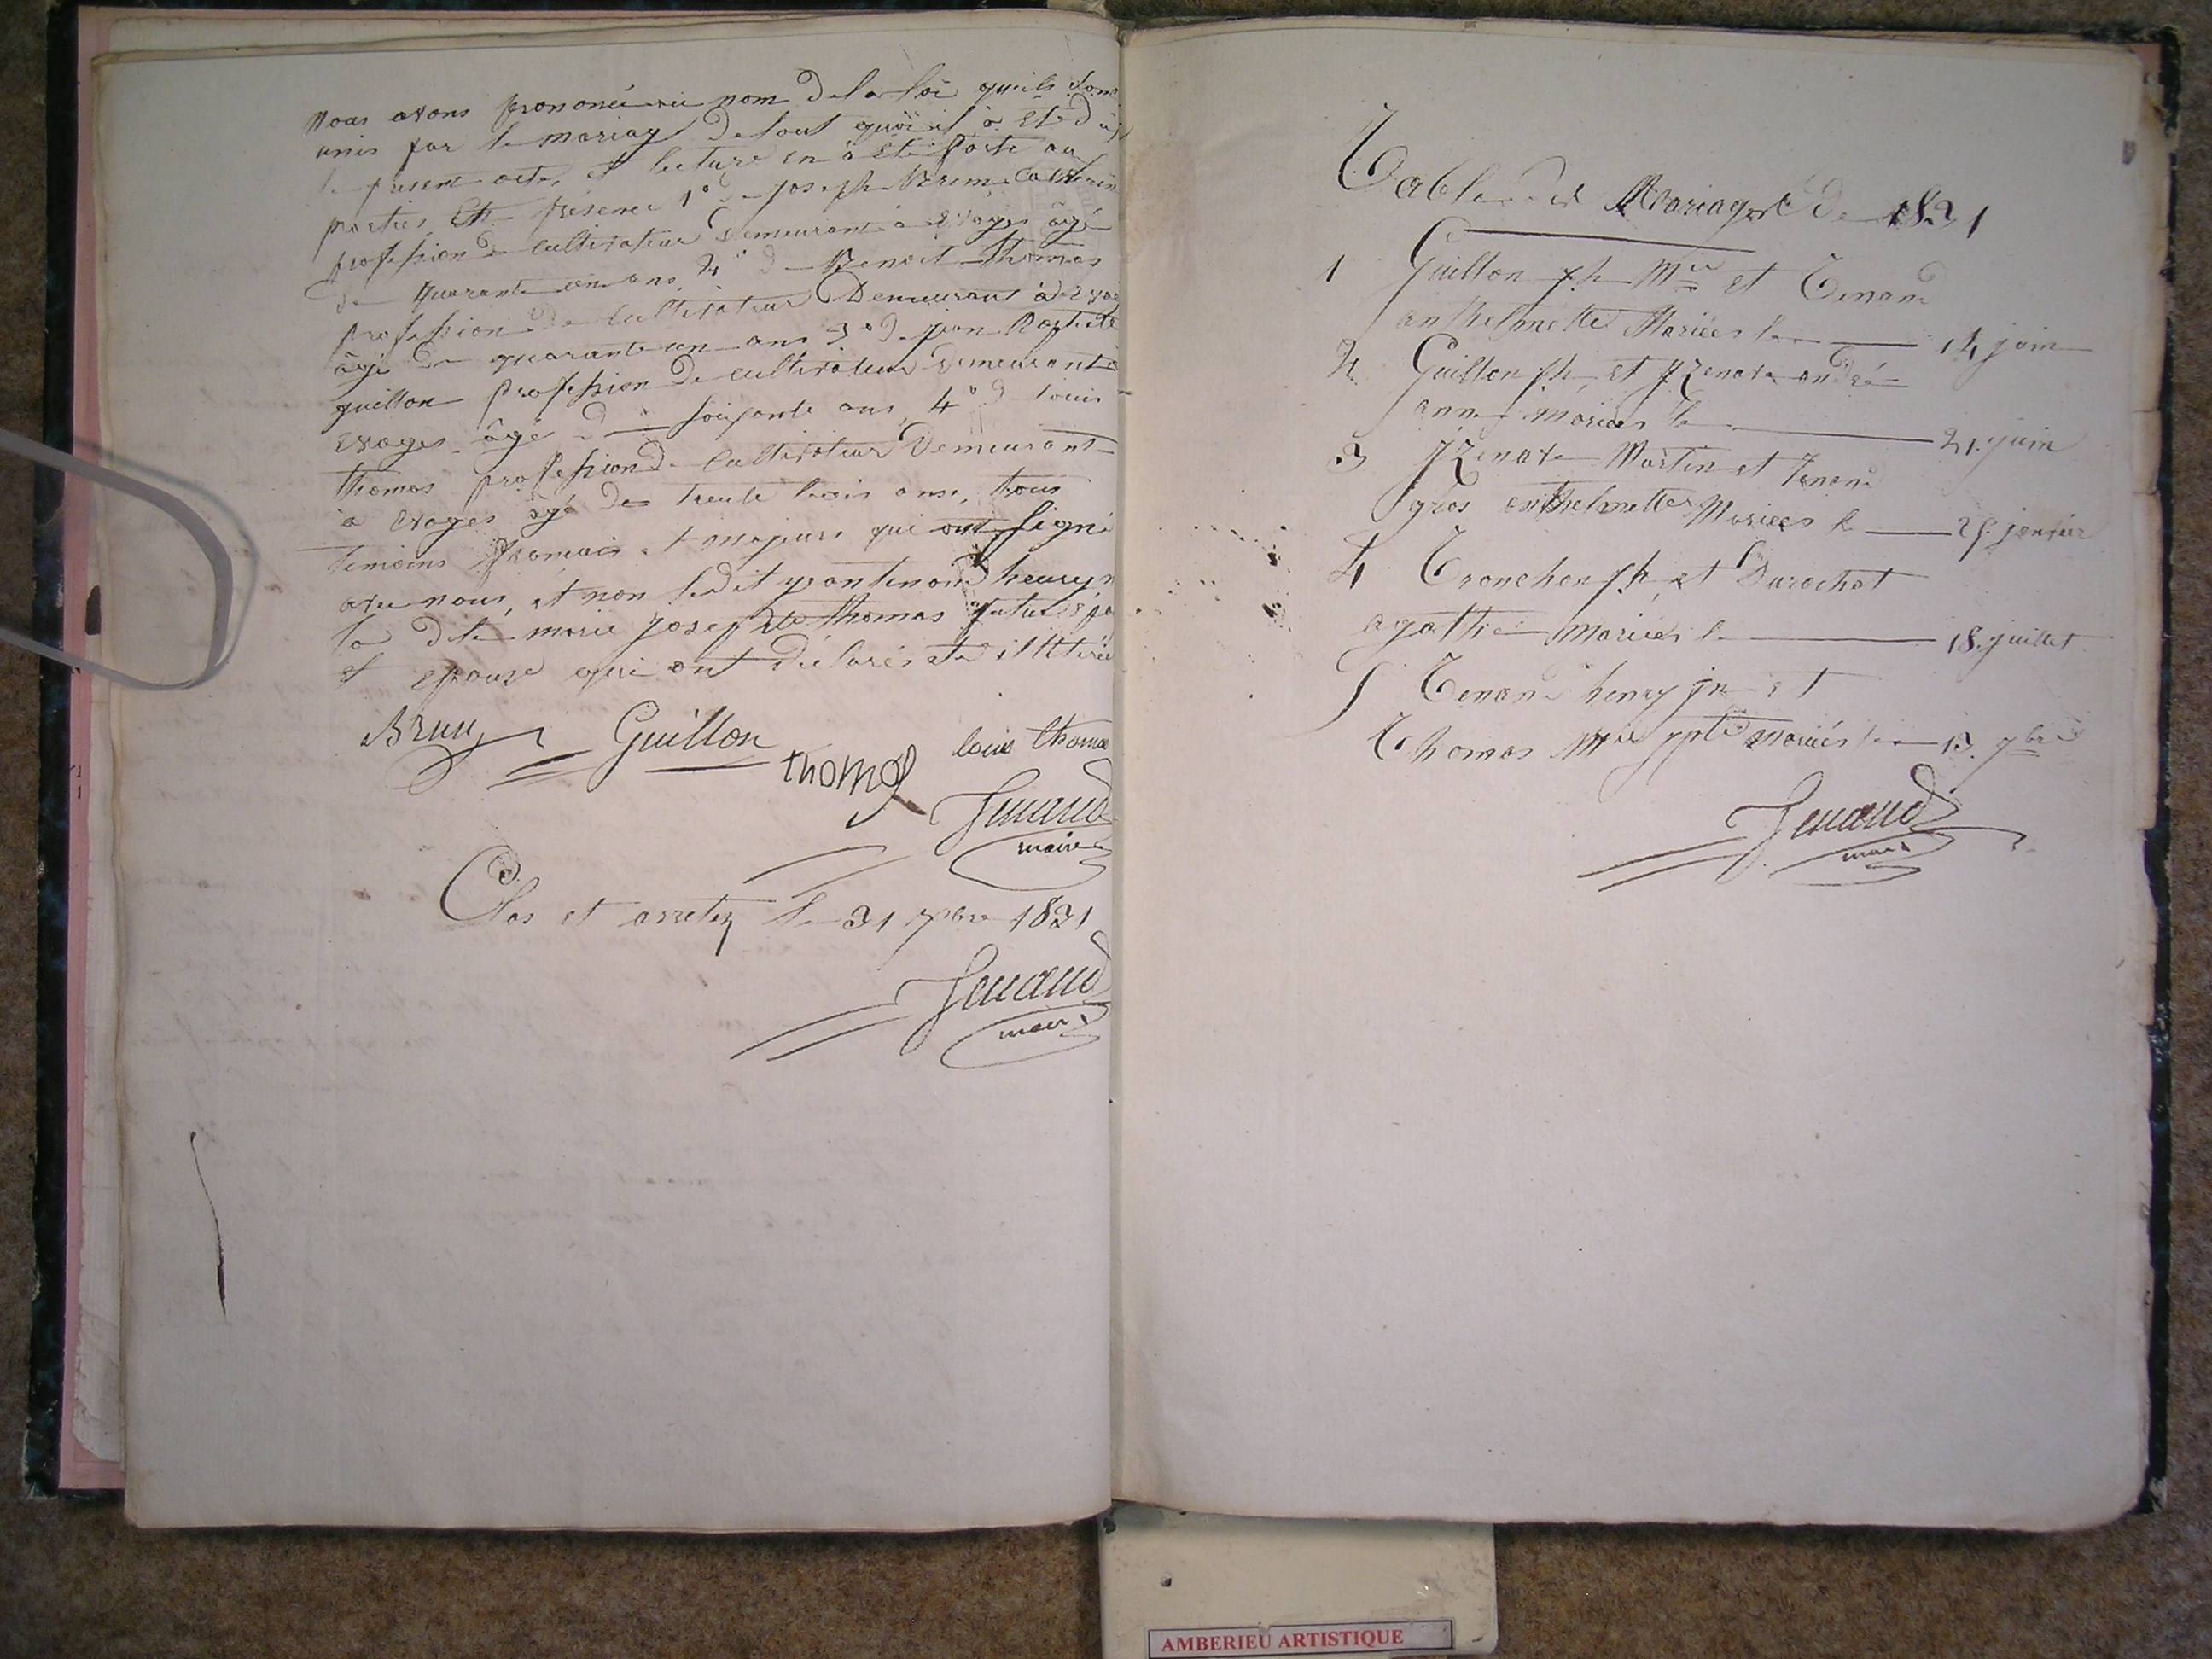 nous avons prononcé au nom de la loi qu'ils sont
unis par le mariage de tout quoi il a été d
le present acte, et lecture en a été faite au
parties En présence 1° de joseph Brun
profession de cultivateur demeurant à Evoges âgé
de quarante un ans, 2° de Benoit Thomas
profession de cultivateur Demeurant à Evo
âgé de quarante un ans 3° de jean Baptiste
guillon profession de cultivateur demeurant à
Evoges âgé de soixante ans, 4° de louis
thomas profession de cultivateur Demeurant
à Evoges âgé de trente trois ans, tous
temoins français et majeurs qui ont signé
avec nous, et non ledit tenand henry
la dite marie josephte thomas futur épo
et epouse qui ont déclarés etre illitérés
Brun Guillon thomas louis thomas
Tenand
maire
Clos et arretez le 31 Xbre 1821
Tenand
maire
Table des Mariages de 1821
1 Guillon jh Mie et Tenand
anthelmette Mariés le 14 juin
2 Guillon jh et Juenet andré
anne mariés le 21 juin
3 Martin et Tenand
gros anthelmette Mariés le 25 janvier
4 Tronchon jh et Durochat
agathe mariés le 18 juillet
5 Tenand henry jn et
Thomas Mie jpte mariés le 13 9bre
Tenand
maire
AMBERIEU ARTISTIQUE